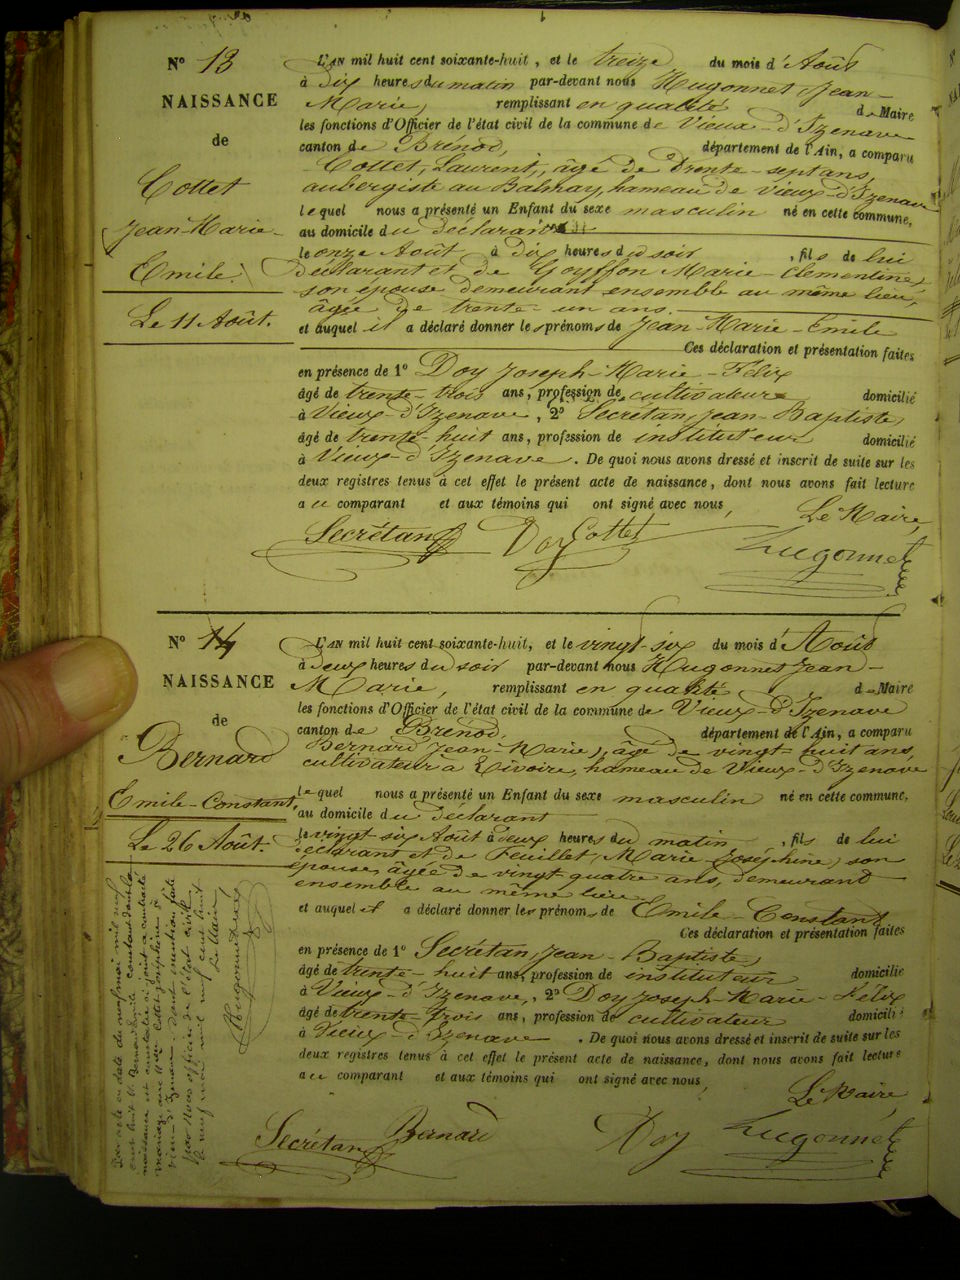 N° 13
NAISSANCE
de
Cottet
Jean-Marie-
Emile.
Le 11 Août.
L'AN mil huit cent soixante-huit, et le treize du mois d'Août
à dix heures du matin par-devant nous Hugonnet, Jean-
Marie, remplissant en qualité de Maire
les fonctions d'Officier de l'état civil de la commune de Vieux-d'Izenave
canton de Brénod, département de l'Ain, a comparu
Cottet, Laurent, âgé de trente-sept ans,
aubergiste au Balmay, hameau de Vieux-d'Izenave
lequel nous a présenté un Enfant du sexe masculin né en cette commune,
au domicile du déclarant
le onze Août à dix heures du soir, fils de lui
déclarant et de Goyffon Marie-Clementine,
son épouse demeurant ensemble au même lieu,
âgée de trente-un ans.
et auquel il a déclaré donner les prénoms de Jean-Marie-Emile
Ces déclaration et présentation faites
en présence de 1° Doy Joseph-Marie-Félix
âgé de trente-trois ans, profession de cultivateur domicilié
à Vieux-d'Izenave, 2° Secrétan, Jean-Baptiste,
âgé de trente-huit ans, profession de instituteur domicilié
à Vieux-d'Izenave. De quoi nous avons dressé et inscrit de suite sur les
deux registres tenus à cet effet le présent acte de naissance, dont nous avons fait lecture
au comparant et aux témoins qui ont signé avec nous,
Le Maire,
Secrétan Doy Cottet Hugonnet
N° 14
NAISSANCE
de
Bernard
Emile-Constant,
Le 26 Août.
L'AN mil huit cent soixante-huit, et le vingt-six du mois d'Août
à deux heures du soir par-devant nous Hugonnet Jean-
Marie, remplissant en qualité de Maire
les fonctions d'Officier de l'état civil de la commune de Vieux-d'Izenave
canton de Brénod, département de l'Ain, a comparu
Bernard Jean-Marie, âgé de vingt-huit ans,
cultivateur à Livoire, hameau de Vieux-d'Izenave
lequel nous a présenté un Enfant du sexe masculin né en cette commune,
au domicile du déclarant
le vingt-six Août à deux heures du matin, fils de lui
déclarant et de Feuillet, Marie-Joséphine, son
épouse, âgée de vingt quatre ans, demeurant
ensemble au même lieu
et auquel il a déclaré donner les prénoms de Emile-Constant
Ces déclaration et présentation faites
en présence de 1° Secrétan, Jean-Baptiste,
âgé de trente-huit ans, profession de instituteur domicilié
à Vieux-d'Izenave, 2° Doy Joseph-Marie-Félix
âgé de trente-trois ans, profession de cultivateur domicilié
à Vieux-d'Izenave. De quoi nous avons dressé et inscrit de suite sur les
deux registres tenus à cet effet le présent acte de naissance, dont nous avons fait lecture
au comparant et aux témoins qui ont signé avec nous,
Le Maire,
Secrétan Bernard Doy Hugonnet
Par acte en date du neuf mai mil neuf
cent huit Bernard Emile Constant dont la
naissance est constatée ci-joint a contracté
mariage avec Cottet Joséphine à
Vieux-d'Izenave dont mention faite
par Nous officier de l'état civil
le neuf mai mil neuf cent huit
Le Maire